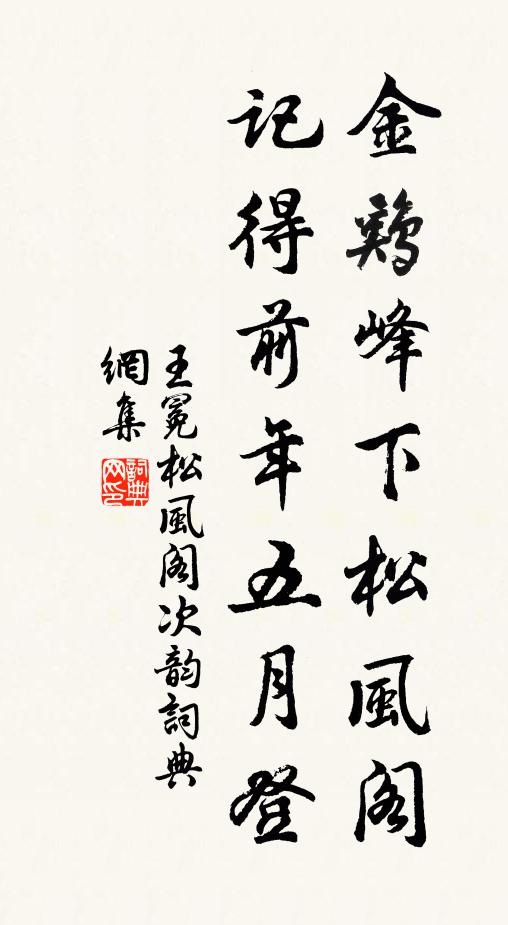 金鷄峰下松風阁
记得前年五月登
王冕松風阁次韵詞典
網集
詞典
网印